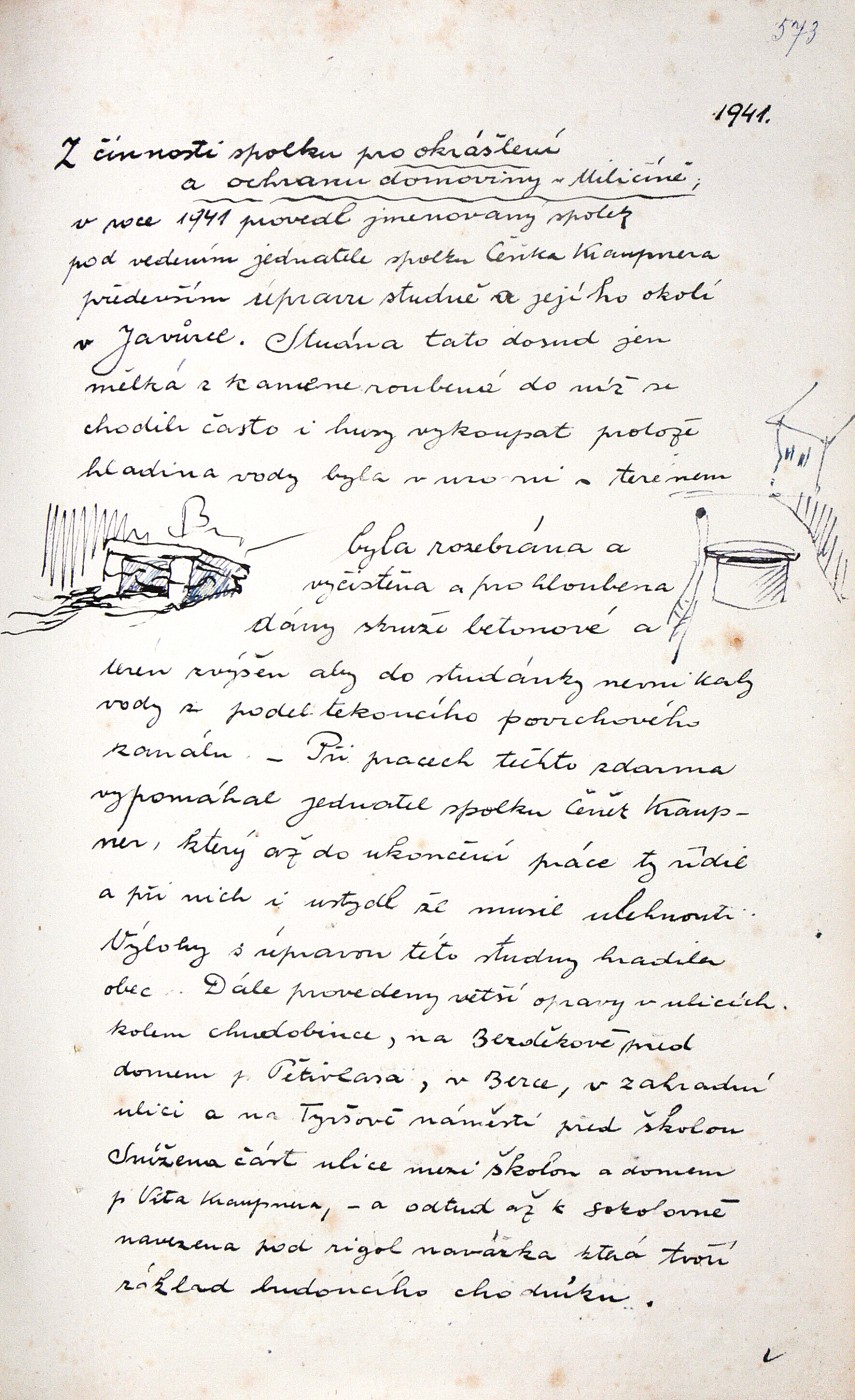 573
1941.
Z činnosti spolku pro okrášlení
a ochranu domoviny v Miličíně;
v roce 1941 provedl jmenovaný spolek
pod vedením jednatele spolku Čeňka Kraupnera
především úpravu studně a jejího okolí
v Javůrce. Studna tato dosud jen
mělká z kamene roubená do níž se
chodili často i husy vykoupat protože
hladina vody byla v úrovni s terénem
byla rozebrána a
vyčistěna a prohloubena
dány skruže betonové a
terén zvýšen aby do studánky nevnikaly
vody z podél tekoucího povrchového
kanálu. – Při pracech těchto zdarma
vypomáhal jednatel spolku Čeněk Kraup-
ner, který až do ukončení práce ty řídil
a při nich i ustydl že musil ulehnouti.
Výlohy s úpravou této studny hradila
obec. Dále provedeny větší opravy v ulicích.
kolem chudobince, na Bezděkově před
domem p. Pětivlasa, v Berce, v zahradní
ulici a na Tyršově náměstí před školou
Snížena část ulice mezi školou a domem
p Víta Kraupnera, – a odtud až k sokolovně
navezena pod rigol navážka ktrá tvoří
základ budoucího chodníku.